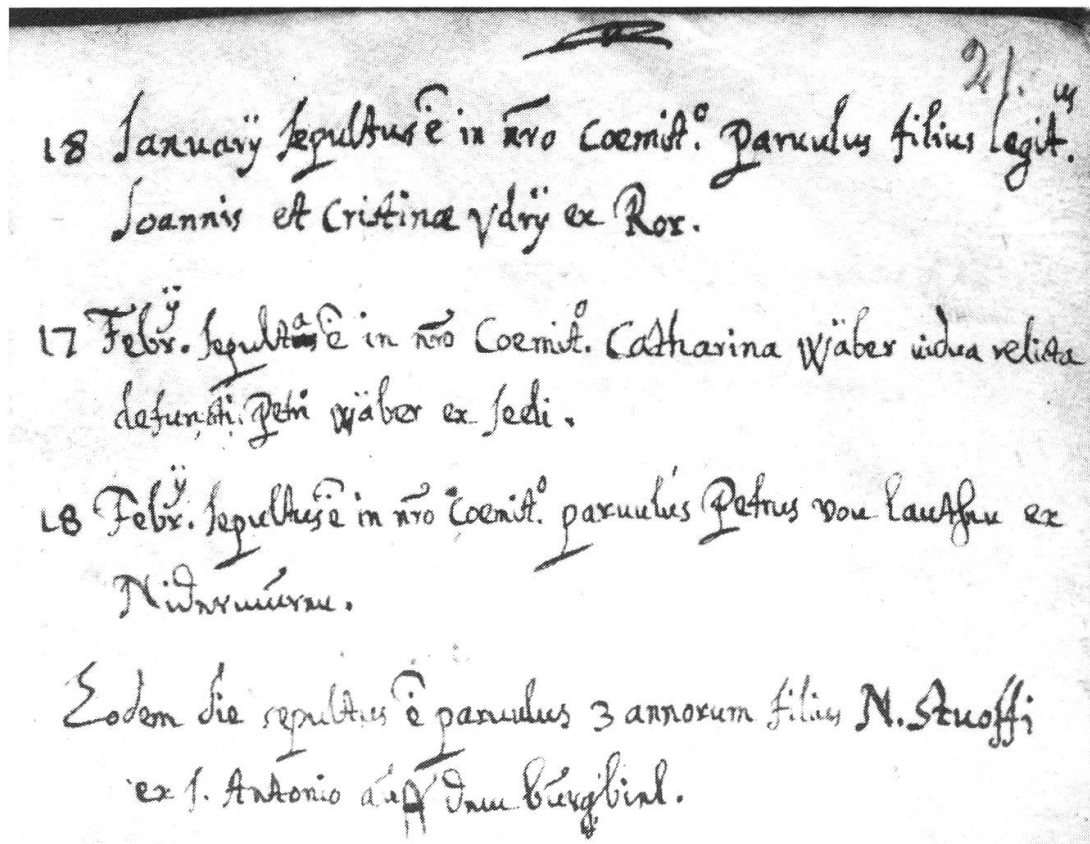 21.
18 Januarij sepultus ē in nr̄o Coemit.º parvulus filius legit.us
Joannis et Cristinæ Vdrÿ ex Ror.
17 Febr.ÿ sepulta ē in nr̄o Coemit.º Catharina Wäber uidua relicta
defuncti Petri Wäber ex sedi.
18 Febr.ÿ sepultus ē in nr̄o Coemit.º paruulus Petrus von Lauthen ex
Nidermuren.
Eodem die sepultus ē paruulus 3 annorum filius N. Stuoffi
ex S. Antonio auff dem burgbiel.